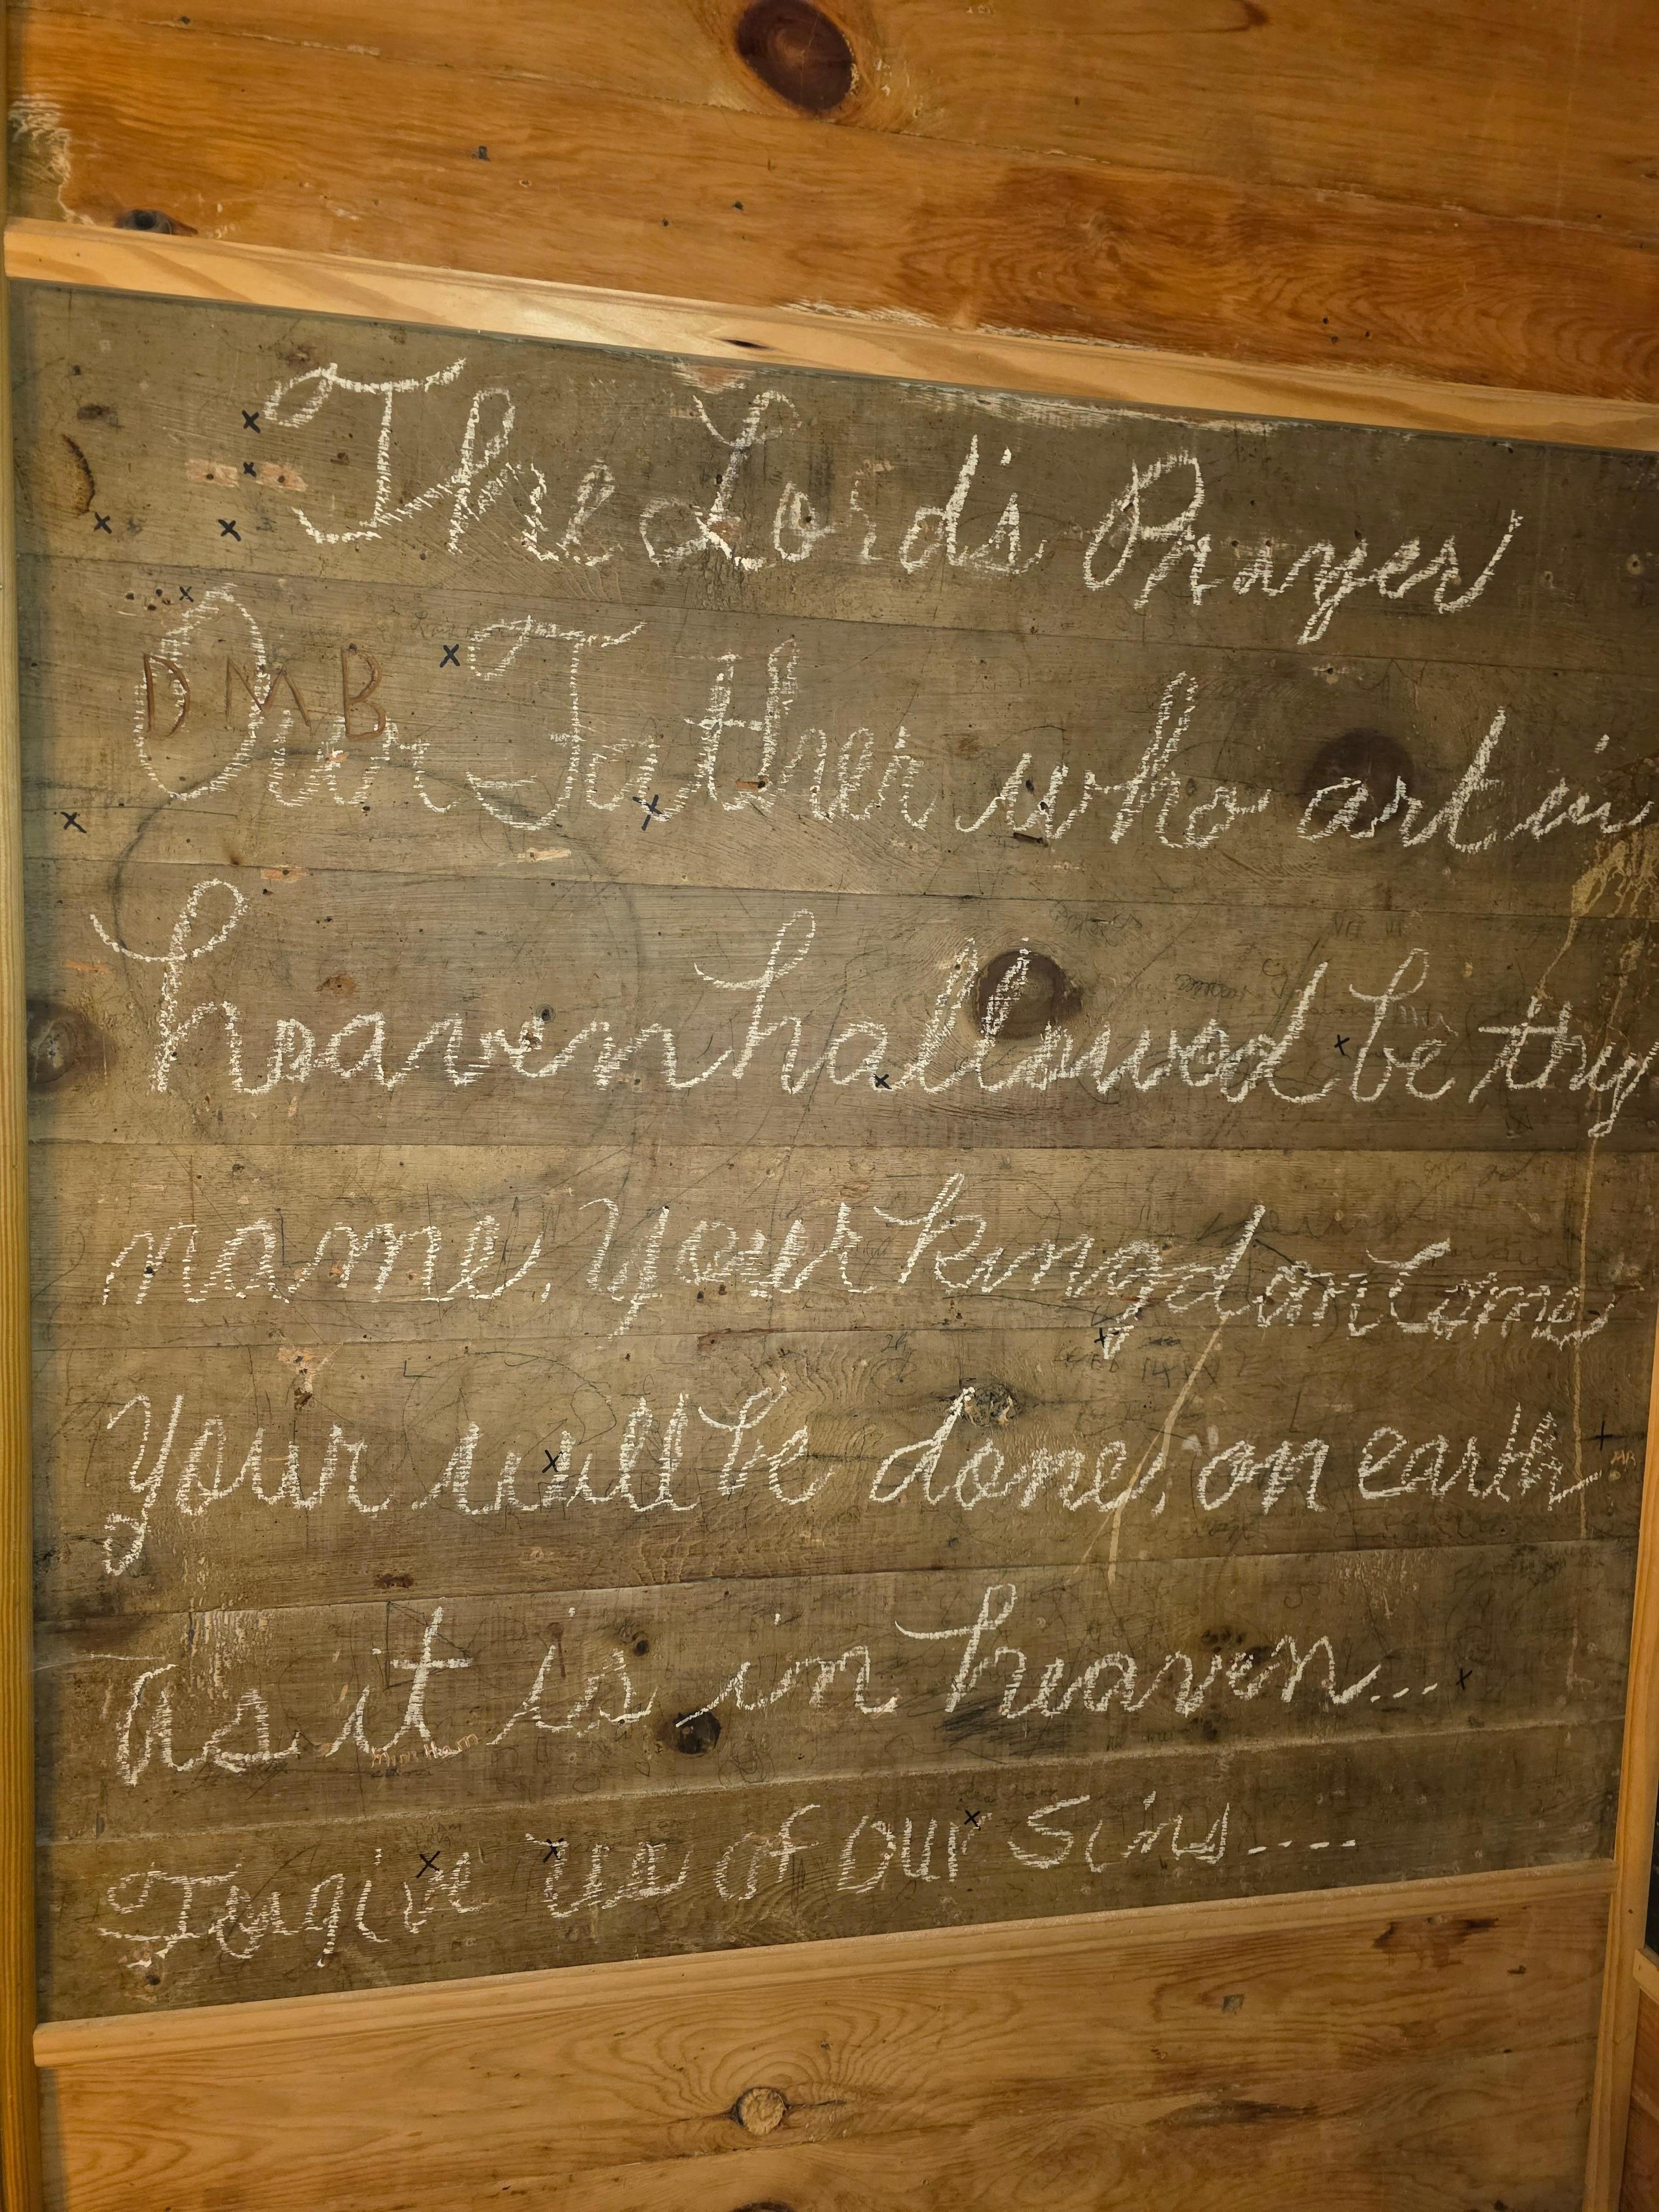 The Lord's Prayer
DMB
Our Father who art in
heaven hallowed be thy
name. Your kingdom come
Your will be done, on earth
as it is in heaven...
Forgive us of our Sins....